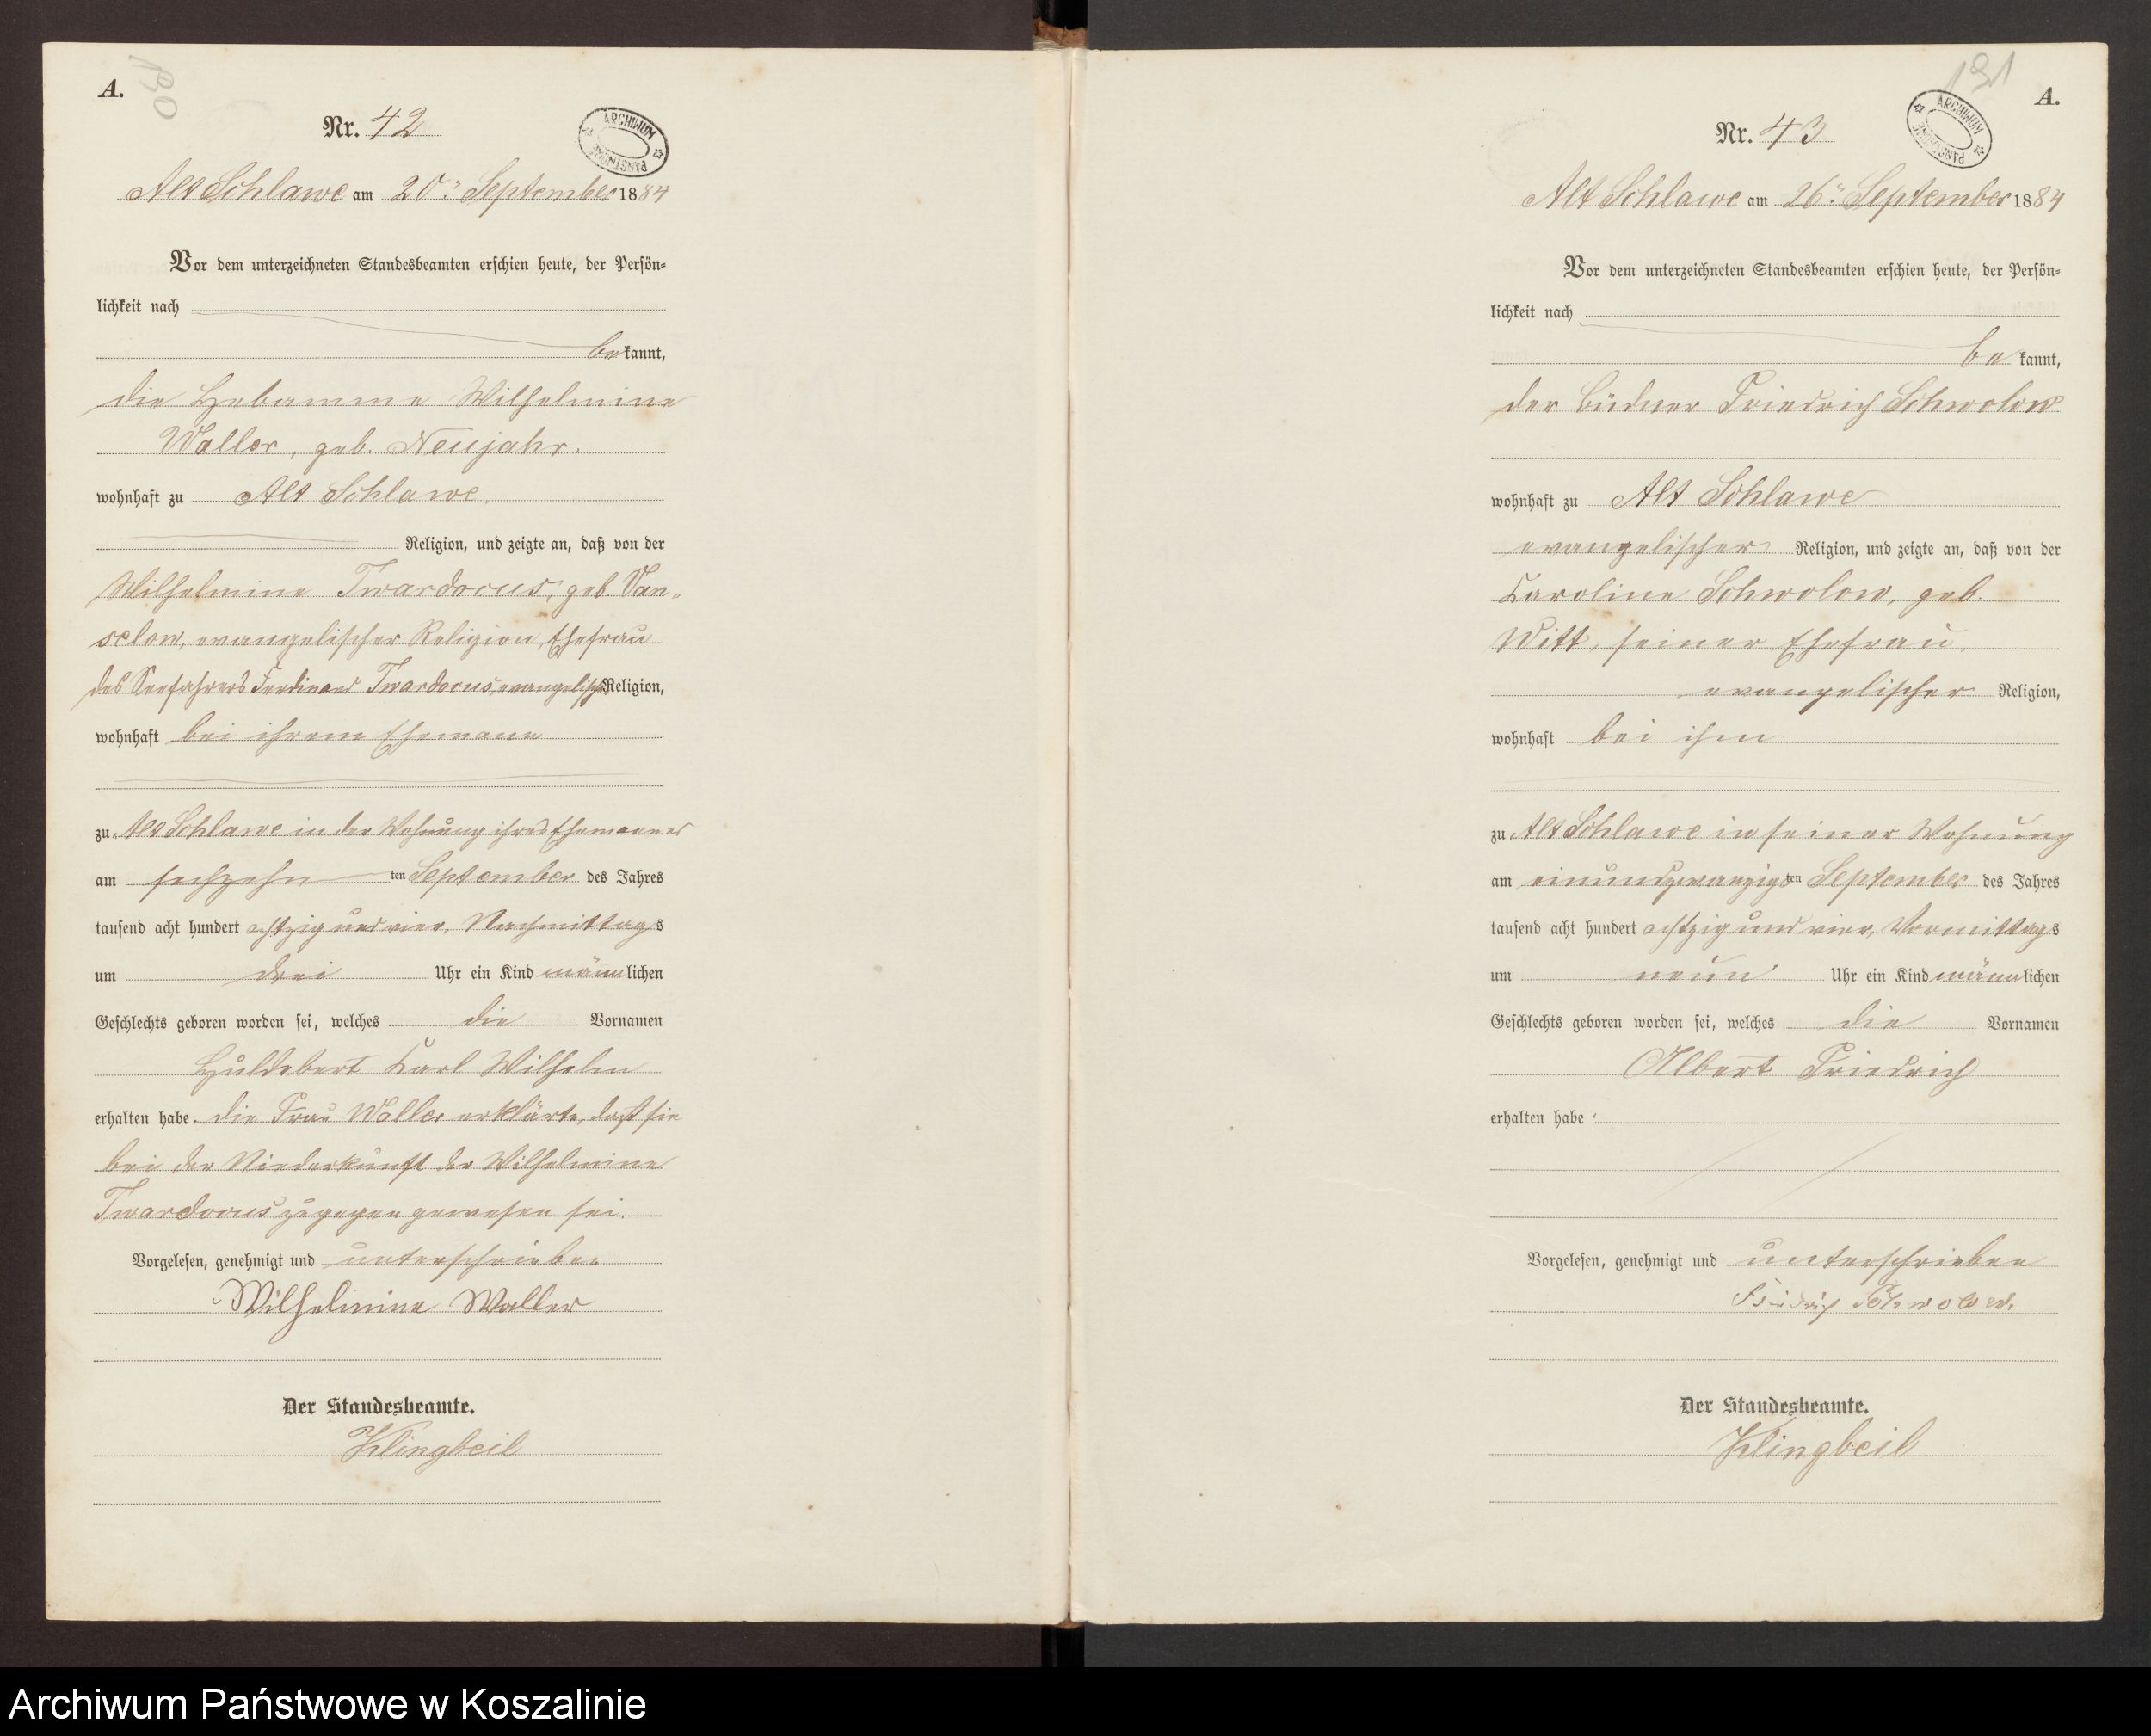 A.
130
Nr. 42
ARCHIWUM PAŃSTWOWE
Alt Schlawe am 20ten September 1884
Vor dem unterzeichneten Standesbeamten erschien heute, der Persön-
lichkeit nach
bekannt,
die Hebamme Wilhelmine
Waller, geb. Neujahr.
wohnhaft zu Alt Schlawe,
Religion, und zeigte an, daß von der
Wilhelmine Twardocus, geb. Van-
selow, evangelischer Religion, Ehefrau
des Seefahrers Ferdinand Twardocus, evangelisch Religion,
wohnhaft bei ihrem Ehemann
zu Alt Schlawe in der Wohnung ihres Ehemannes
am sechzehn ten September des Jahres
tausend acht hundert achtzig und vier, Nachmittags
um drei Uhr ein Kind männlichen
Geschlechts geboren worden sei, welches die Vornamen
Huldebert Karl Wilhelm
erhalten habe. die Frau Waller erklärte, daß sie
bei der Niederkunft der Wilhelmine
Twardocus zugegen gewesen sei.
Vorgelesen, genehmigt und unterschrieben
Wilhelmine Waller
Der Standesbeamte.
Klingbeil
131
A.
Nr. 43
ARCHIWUM PAŃSTWOWE
Alt Schlawe am 26ten September 1884
Vor dem unterzeichneten Standesbeamten erschien heute, der Persön-
lichkeit nach
be kannt,
der Büdner Friedrich Schwolow
wohnhaft zu Alt Schlawe
evangelischer Religion, und zeigte an, daß von der
Karoline Schwolow, geb.
Witt, seiner Ehefrau,
evangelischer Religion,
wohnhaft bei ihm
zu Alt Schlawe in seiner Wohnung
am einundzwanzigsten September des Jahres
tausend acht hundert achtzig und vier, Vormittags
um neun Uhr ein Kind männlichen
Geschlechts geboren worden sei, welches die Vornamen
Albert Friedrich
erhalten habe.
Vorgelesen, genehmigt und unterschrieben
Friedrich Schwolow.
Der Standesbeamte.
Klingbeil
Archiwum Państwowe w Koszalinie